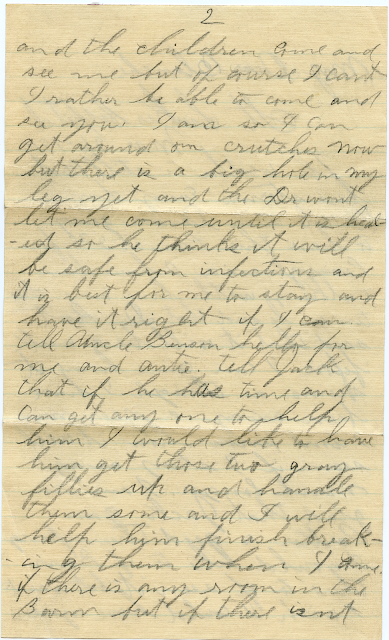 2
and the children come and
see me but of course I cant
I rather be able to come and
see you. I am so I can
get around on crutches now
but there is a big hole in my
leg yet and the Dr wont
let me come until it is heal-
-ed so he thinks it will
be safe from infections and
it is but for me to stay and
have it right if I can.
tell Uncle Benson hello for
me and antie. tell Jack
that if he has time and
can get any one to help
him I would like to have
him get those two gray
fillies up and handle
them some and I will
help him finish break-
-ing them when I come.
if there is any room in the
Barn but if there isnt